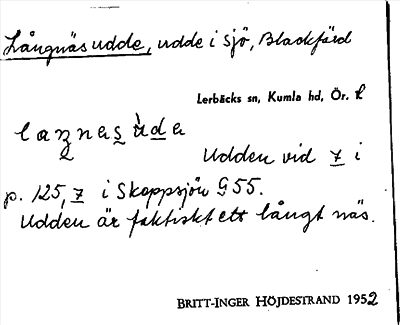 Långnäsudde, udde i sjö, Blackfjärd
Lerbäcks sn, Kumla hd, Ör. l
laŋnæsùda
Udden vid z i
p. 125, z i Skoppsjön G 55.
Udden är faktiskt ett långt näs.
BRITT-INGER HÖJDESTRAND 1952